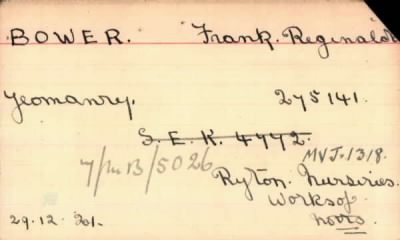 BOWER. Frank. Reginald
Yeomanry. 275141.
S.E.K. 4772.
7/M B/5026 MVJ.1318.
Ryton. Nurseries.
Worksop
Notts.
29.12.